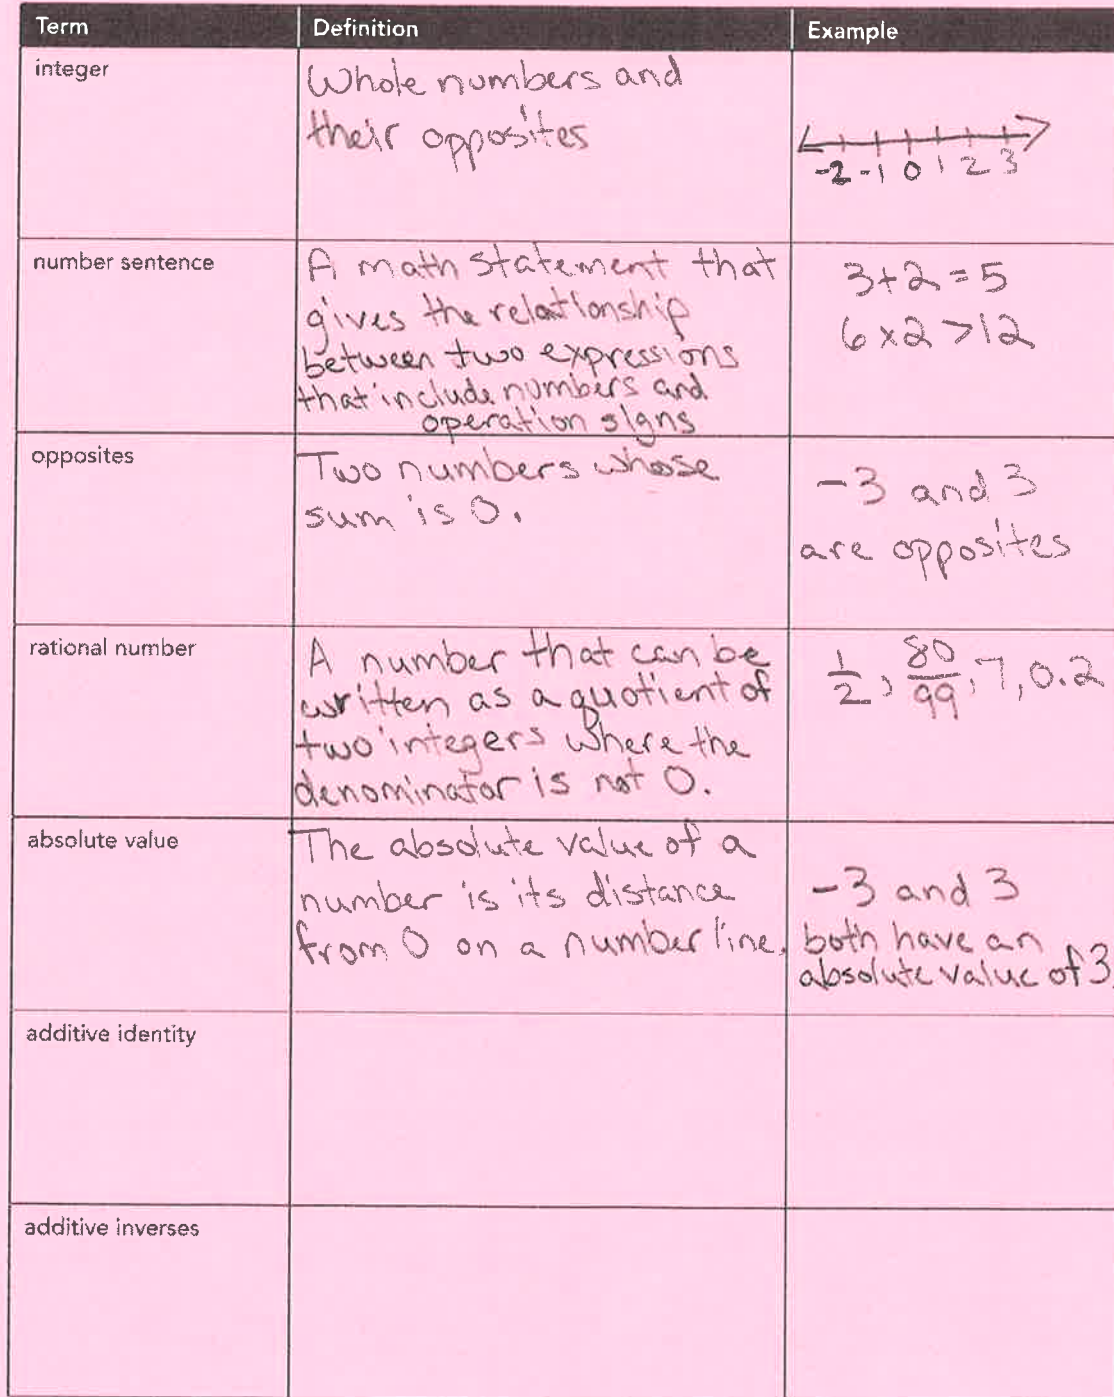 Term Definition Example
integer
Whole numbers and
their opposites
-2 -1 0 1 2 3
number sentence
A math statement that
gives the relationship
between two expressions
that include numbers and
operation signs
3+2=5
6x2>12
opposites
Two numbers whose
sum is 0.
-3 and 3
are opposites
rational number
A number that can be
written as a quotient of
two integers where the
denominator is not 0.
1/2, 80/99, 7, 0.2
absolute value
The absolute value of a
number is its distance
from 0 on a number line.
-3 and 3
both have an
absolute value of 3.
additive identity
additive inverses